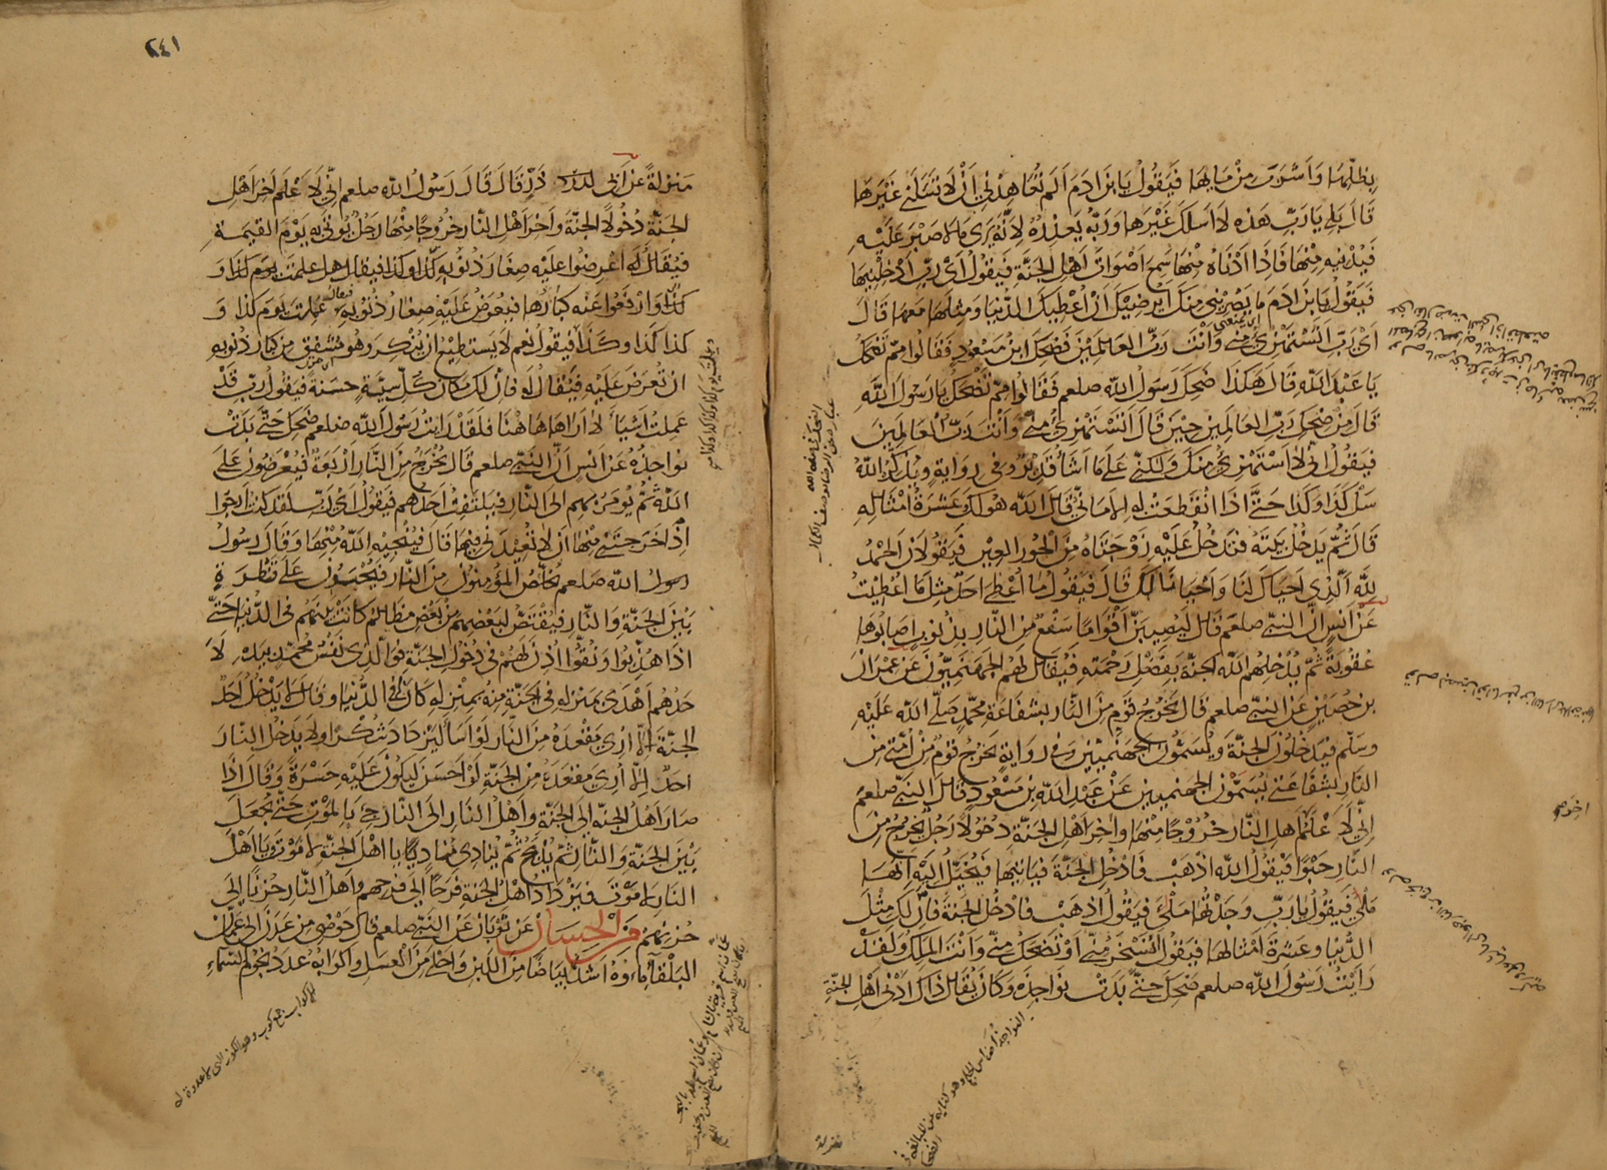 بظلّها وَاَشرب مِنْ مَايِهَا فيَقُولُ يَا بْنَ ادَمَ اَلَم تُعَاهِدْنِي اَنْ لَا تَسْئَلَنِي غَيْرَهَا
قَالَ بَلَى يَا رَبّ هَذه لا اَسئلكَ غَيْرَهَا وَرَبُّه يَعذِرُهُ لِاَنَّه يَرَى مَا لَا صَبْرَ عَلَيْهِ
فَيُدْنِيهِ مِنْهَا فَاِذَا اَدْنَاهُ مِنْهَا سَمِعَ اَصْوَاتَ اَهْلِ الجَنَّةِ فَيَقُولُ اَىْ رَبِّ اَدْخِلْنِيهَا
فَيَقُولُ يَا بْنَ ادَمَ مَا يَصْرِينِي مِنكَ اَيُرضِيْكَ اَنْ اُعْطِيَكَ الدُّنْيَا وَمِثلَهَا مَعَهَا قَالَ
اَىْ رَبّ اَتَسْتَهْزِئ مِنّى وَاَنْتَ رَبّ العَالَمِيْنَ فَضَحِكَ ابْنُ مَسْعُودٍ فَقَالُوا مِمّ تَضْحَكُ
يَا عَبْدَ اللّٰه قَالَ هَكَذَا ضَحِكَ رَسُولُ اللّٰه صلعم فَقَالُوا مِمّ تَضْحَكُ يَا رَسُولَ اللّٰه
قَالَ مِنْ ضَحِكِ رَبّ العَالَمِينَ حِيْنَ قَالَ اَتَسْتَهْزِئ مِنّى وَاَنْتَ رَبّ العَالَمِينَ
فيَقُولُ اِنّى لَا اَسْتَهْزِئ مِنكَ وَلكِنّى عَلَى مَا اَشَاءُ قَدِيْرٌ وفى رِوَايَةٍ وَيُذَكِّرُهُ اللّٰهُ
سَلْ كَذَا وكَذَا حَتَّى اِذَا انْقَطَعَتْ بِهِ الاَمَانِىُّ قَالَ اللّٰه هُوَ لَكَ وَعَشَرَةُ اَمْثَالِهِ
قَالَ ثُمّ يَدْخُلُ بَيْتَهُ فتَدْخُلُ عَلَيْهِ زَوْجَتَاهُ مِنَ الحُورِ العِيْنِ فَيَقُولَانِ الحَمْدُ
لِلّٰهِ الَّذِى اَحْيَاكَ لَنَا وَاَحْيَانَا لَكَ قَالَ فَيَقُولُ مَا اُعْطِىَ اَحَدٌ مِثْلَ مَا اُعْطِيْتُ
عَنْ اَنَسٍ اَنّ النّبىّ صلعم قَالَ لَيُصِيبَنّ اَقْوَامًا سَفْعٌ مِنَ النّارِ بِذُنُوبٍ اَصَابُوهَا
عُقُوبَةً ثُمّ يُدْخِلُهُمُ اللّٰه الجنّة بِفَضْلِ رَحْمَتِهِ فَيُقَالُ لَهُمُ الجَهَنّمِيّوْنَ عَنْ عِمْرَانَ
بن حُصَيْنٍ عَنِ النّبىّ صلعم قَالَ يَخْرُجُ قَوْمٌ مِنَ النّارِ بِشَفَاعَةِ مُحَمّدٍ صَلَّى اللّٰه عَلَيْهِ
وسَلَّم فيَدْخُلُونَ الجَنّةَ وَيُسَمّوْنَ الجَهَنّمِيّيْنَ وفى رِوَايَةٍ يَخْرُجُ قَوْمٌ مِنْ اُمّتِى مِنَ
النّارِ بِشَفَاعَتِى يُسَمّوْنَ الجهنميين عَنْ عَبْدِ اللّٰه بنِ مَسْعُودٍ قَالَ النّبىّ صلعم
اِنّى لَاَعْلَمُ اٰخِرَ اَهْلِ النّارِ خُرُوْجًا مِنْهَا وَاٰخِرَ اَهْلِ الجَنّةِ دُخُولًا رَجُلٌ يَخْرُجُ مِنَ
النّارِ حَبْوًا فَيَقُولُ اللّٰه اذْهَبْ فَادْخُلِ الجَنّةَ فَيَاتِيْهَا فَيُخَيَّلُ اِلَيْهِ اَنّهَا
مَلْاَى فَيَقُولُ يَا رَبّ وَجَدْتُهَا مَلْاَى فَيَقُولُ اذْهَبْ فَادْخُلِ الجَنّةَ فَاِنّ لَكَ مِثْلَ
الدُّنْيَا وعَشَرَةَ اَمْثَالِهَا فيَقُولُ اَتَسْخَرُ مِنّى اَوْ تَضْحَكُ مِنّى وَاَنْتَ المَلِكُ وَلَقَدْ
رَاَيْتُ رَسُولَ اللّٰه صلعم ضَحِكَ حَتّى بَدَتْ نَوَاجِذُهُ وَكَانَ يُقَالُ ذَاكَ اَدْنٰى اَهْلِ الجَنّةِ
٢٤١
مَنزِلَةً عَنْ اَبِى ذَرّ قَالَ قَالَ رَسُولُ اللّٰه صلعم اِنّى لَاَعْلَمُ اٰخِرَ اَهْلِ
الجَنّة دُخُولًا الجنّةَ وَاٰخِرَ اَهْلِ النّارِ خرُوجًا مِنْهَا رَجُلٌ يُوتٰى بِهِ يَوْمَ القيمةِ
فيُقَالُ اعرِضُوا عَلَيْهِ صِغَارَ ذُنُوبِهِ كَذَا وَكَذَا فيقال هل عملتَ يومَ كذَا وَ
كذا وارْفَعُوا عَنْهُ كِبَارَهَا فتُعرَضُ عَلَيْهِ صغارُ ذُنُوبِه فيقال عملت يومَ كَذا وَ
كذا كَذا وكَذَا فَيَقُولُ نَعَم لَا يَسْتَطِيعُ اَنْ يُنْكِرَ وهُوَ مُشْفِقٌ مِن كِبَارِ ذُنُوبِهِ
اَنْ تُعْرَضَ عَلَيْهِ فيُقَالُ لَه فَاِنّ لَكَ مَكَانَ كُلِّ سَيّئَةٍ حَسَنَةً فَيَقُولُ رَبّ قَدْ
عَمِلْتُ اَشْيَاءَ لَا اَرَاهَا هَا هُنَا فَلَقَدْ رَاَيتُ رَسُولَ اللّٰه صلعم ضَحِكَ حَتّى بَدَتْ
نَوَاجِذُه عَنْ اَنَسٍ اَنَّ النَّبِىَّ صلعم قَالَ يَخْرُجُ مِنَ النّارِ اَرْبَعَةٌ فَيُعْرَضُوْنَ عَلَى
اللّٰه ثُمّ يُؤمَرُ بِهِم اِلَى النّارِ فيَلتَفِتُ اَحَدُهُم فَيَقُولُ اَىْ رَبّ لَقَد كُنْتُ اَرْجُوا
اِذْ اَخْرَجْتَنِى مِنْهَا اَنْ لَا تُعِيْدَنِى فِيهَا قَالَ فَيُنْجِيهِ اللّٰه مِنْهَا وَقَالَ رَسُولُ
رسولُ اللّٰه صَلعم يُخَلَّصُ المُؤمِنُونَ مِنَ النّارِ فَيُحْبَسُونَ عَلَى قَنْطَرَةٍ
بَيْنَ الجَنّةِ والنّارِ فيُقْتَصُّ لِبَعْضِهِم مِنْ بَعْضٍ مَظَالِمُ كَانَتْ بَيْنَهُم فى الدُّنْيَا حَتّى
اِذَا هُذِّبُوا وَنُقُّوا اُذِنَ لَهُمْ فِى دُخُولِ الجَنّة فَوَالّذِى نَفْسُ مُحَمّدٍ بِيَدِهِ لَاَ
حَدُهُم اَهْدَى بِمَنْزِلِهِ فى الجَنّةِ مِنْهُ بِمَنْزِلِهِ كَانَ فى الدُّنْيَا وقَالَ لَا يَدْخُلُ اَحَدٌ
الجنّةَ اِلّا اُرِىَ مَقْعَدَهُ مِنَ النّارِ لَوْ اَسَاءَ لِيَزْدَادَ شُكْرًا وَلَا يَدْخُلُ النّارَ
احدٌ اِلّا اُرِىَ مَقْعَدَهُ مِنَ الجَنّةِ لَوْ اَحْسَنَ لِيَكُوْنَ عَلَيْهِ حَسْرَةً وَقَالَ اِذَا
صَارَ اَهْلُ الجنّة اِلَى الجَنّةِ وَاَهْلُ النّارِ اِلَى النّارِ جِىءَ بِالمَوْتِ حَتّى يُجْعَلَ
بَيْنَ الجَنّةِ وَالنّارِ ثمّ يُذْبَحُ ثُمّ يُنَادِى مُنادٍ يَا اَهْلَ الجَنّةِ لَا مَوْتَ وَيَا اَهْلَ
النّارِ لَا مَوْتَ فيَزْدَادُ اَهْلُ الجَنّة فَرَحًا اِلَى فَرَحِهِم وَاَهلُ النّارِ حُزْنًا اِلَى
حُزْنِهِم مِنَ الْحِسَان عَنْ ثَوْبَانَ عَنِ النّبِىّ صلعم قال حَوْضِى مِن عَدَنَ اِلَى عَمَّانَ
البَلْقَاءِ مَاؤهُ اَشَدُّ بَيَاضًا مِنَ اللَّبَنِ وَاَحْلَى مِنَ العَسَلِ وَاَكْوَابُهُ عَدَدُ نُجُومِ السّمَاءِ